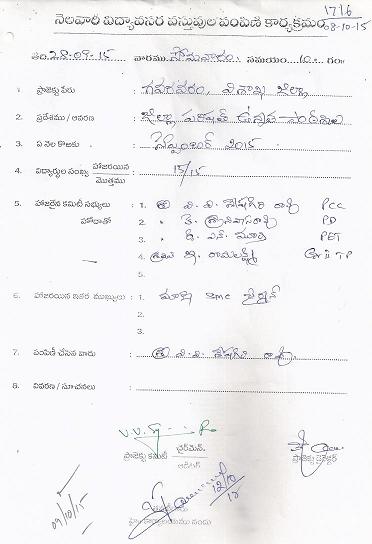 నెలవారి విద్యావసర వస్తువుల పంపిణి కార్యక్రమం
1716
08-10-15
తేది: 28-09-15 వారము సోమవారం సమయం 10 గం॥
1. ప్రాజెక్టు పేరు : గవరవరం, విశాఖ జిల్లా
2. ప్రదేశము / ఆవరణ : జిల్లా పరిషత్ ఉన్నత పాఠశాల
3. ఏ నెల కొఱకు : సెప్టెంబర్ 2015
4. విద్యార్థుల సంఖ్య హాజరయిన / మొత్తము : 15/15
5. హాజరైన కమిటీ సభ్యులు : 1. శ్రీ వి. వి. శేషగిరి రావు PCC
హోదాతో 2. " కె. శ్రీనివాసరావు PD
3. " డి. ఎన్. మూర్తి PET
4. శ్రీమతి రామలక్ష్మి Gr II TP
5.
6. హాజరయిన ఇతర ముఖ్యులు : 1. SMC
2.
3.
7. పంపిణీ చేసిన వారు : శ్రీ వి. వి. శేషగిరి రావు
8. వివరణ / సూచనలు :
ప్రాజెక్టు కమిటీ ఛైర్మెన్.
ఆడిటర్
ప్రాజెక్టు డైరెక్టర్
09/10/15
12/10
15